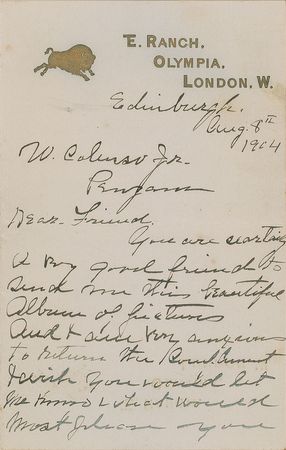 TE RANCH.
OLYMPIA.
LONDON. W.
Edinburgh.
Aug. 8th
1904
W. Colenso Jr.
Dear Friend
You are
a very good friend to
send me this beautiful
Album of Pictures
And I am very anxious
to return the
I wish you would let
me know what would
Most please you